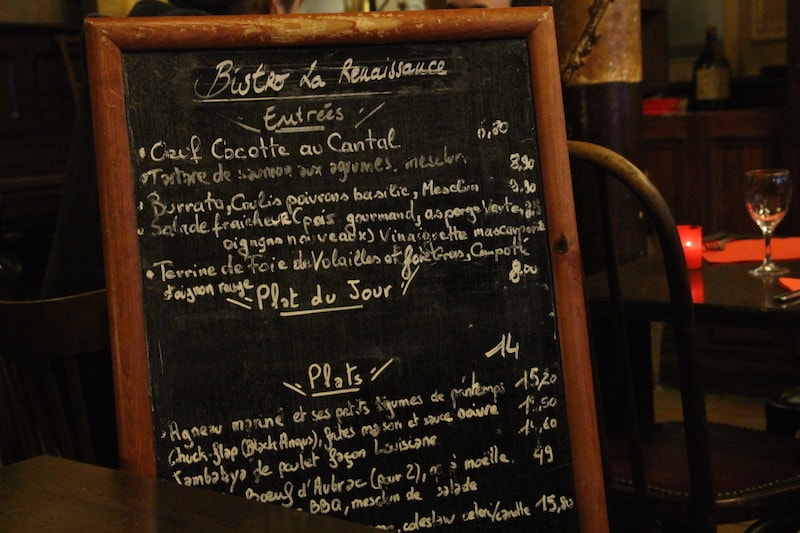 Bistro La Renaissance
Entrées
Œuf Cocotte au Cantal
Tartare de saumon aux agrumes, mesclun 8,90
Burrata, Coulis poivrons basilic, Mesclun 9,90
Salade fraicheur (pois gourmand, asperge Verte,
oignons nouveaux) Vinaigrette mascarpone
Terrine de Foie de Volailles et foie Gras, Compoté
d'oignon rouge 8,00
Plat du Jour
14
Plats
Agneau mariné et ses petits légumes de printemps 15,20
Chuck-flap (Black Angus), frites maison et sauce poivre
Jambalya de poulet façon Louisiane
Boeuf d'Aubrac (pour 2), à moëlle 49
BBQ, mesclun de salade
coleslaw celeri/carotte 15,80